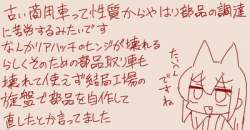 古い商用車って性質からやはり部品の調達
に苦労するみたいです
なんかリアハッチのヒンジが壊れる
らしくそのための部品取り車も
壊れてて使えず結局工場の
旋盤で部品を自作して
直したとか言ってました
たいへん
ですね